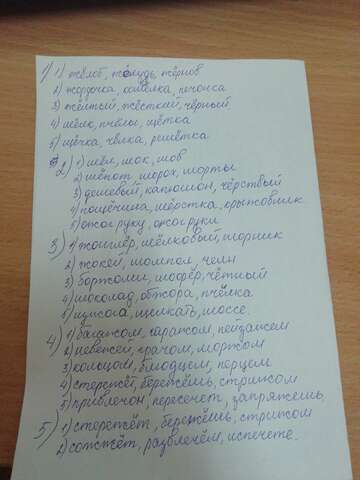 1) 1) жёлоб, жёлудь, жёрнов
2) жердочка, бечёвка, печонка
3) жёлтый, жёсткий, чёрный
4) шёлк, пчёлы, щётка
5) щёчка, чёлка, решётка
2) 1) шёл, шок, шов
2) шёпот, шорох, шорты
3) дешёвый, капюшон, чёрствый
4) пощёчина, шёрстка, крыжовник
5) ожог руку, ожог руки
3) 1) жонглёр, шёлковый, шорник
2) жокей, шомпол, челн
3) боржоми, шофёр, чётный
4) шоколад, обжора, пчёлка
5) щелкать, шоссе.
4) 1) багажом, гаражом, пейзажем
2) невежей, врачом, моржом
3) кольцом, блюдцем, перцем
4) стережёт, бережёшь, стрижом
5) привлечён, пересечёт, запряжёшь,
5) 1) стережёт, бережёшь, стрижом
2) сожжёт, развлечём, испечёте.